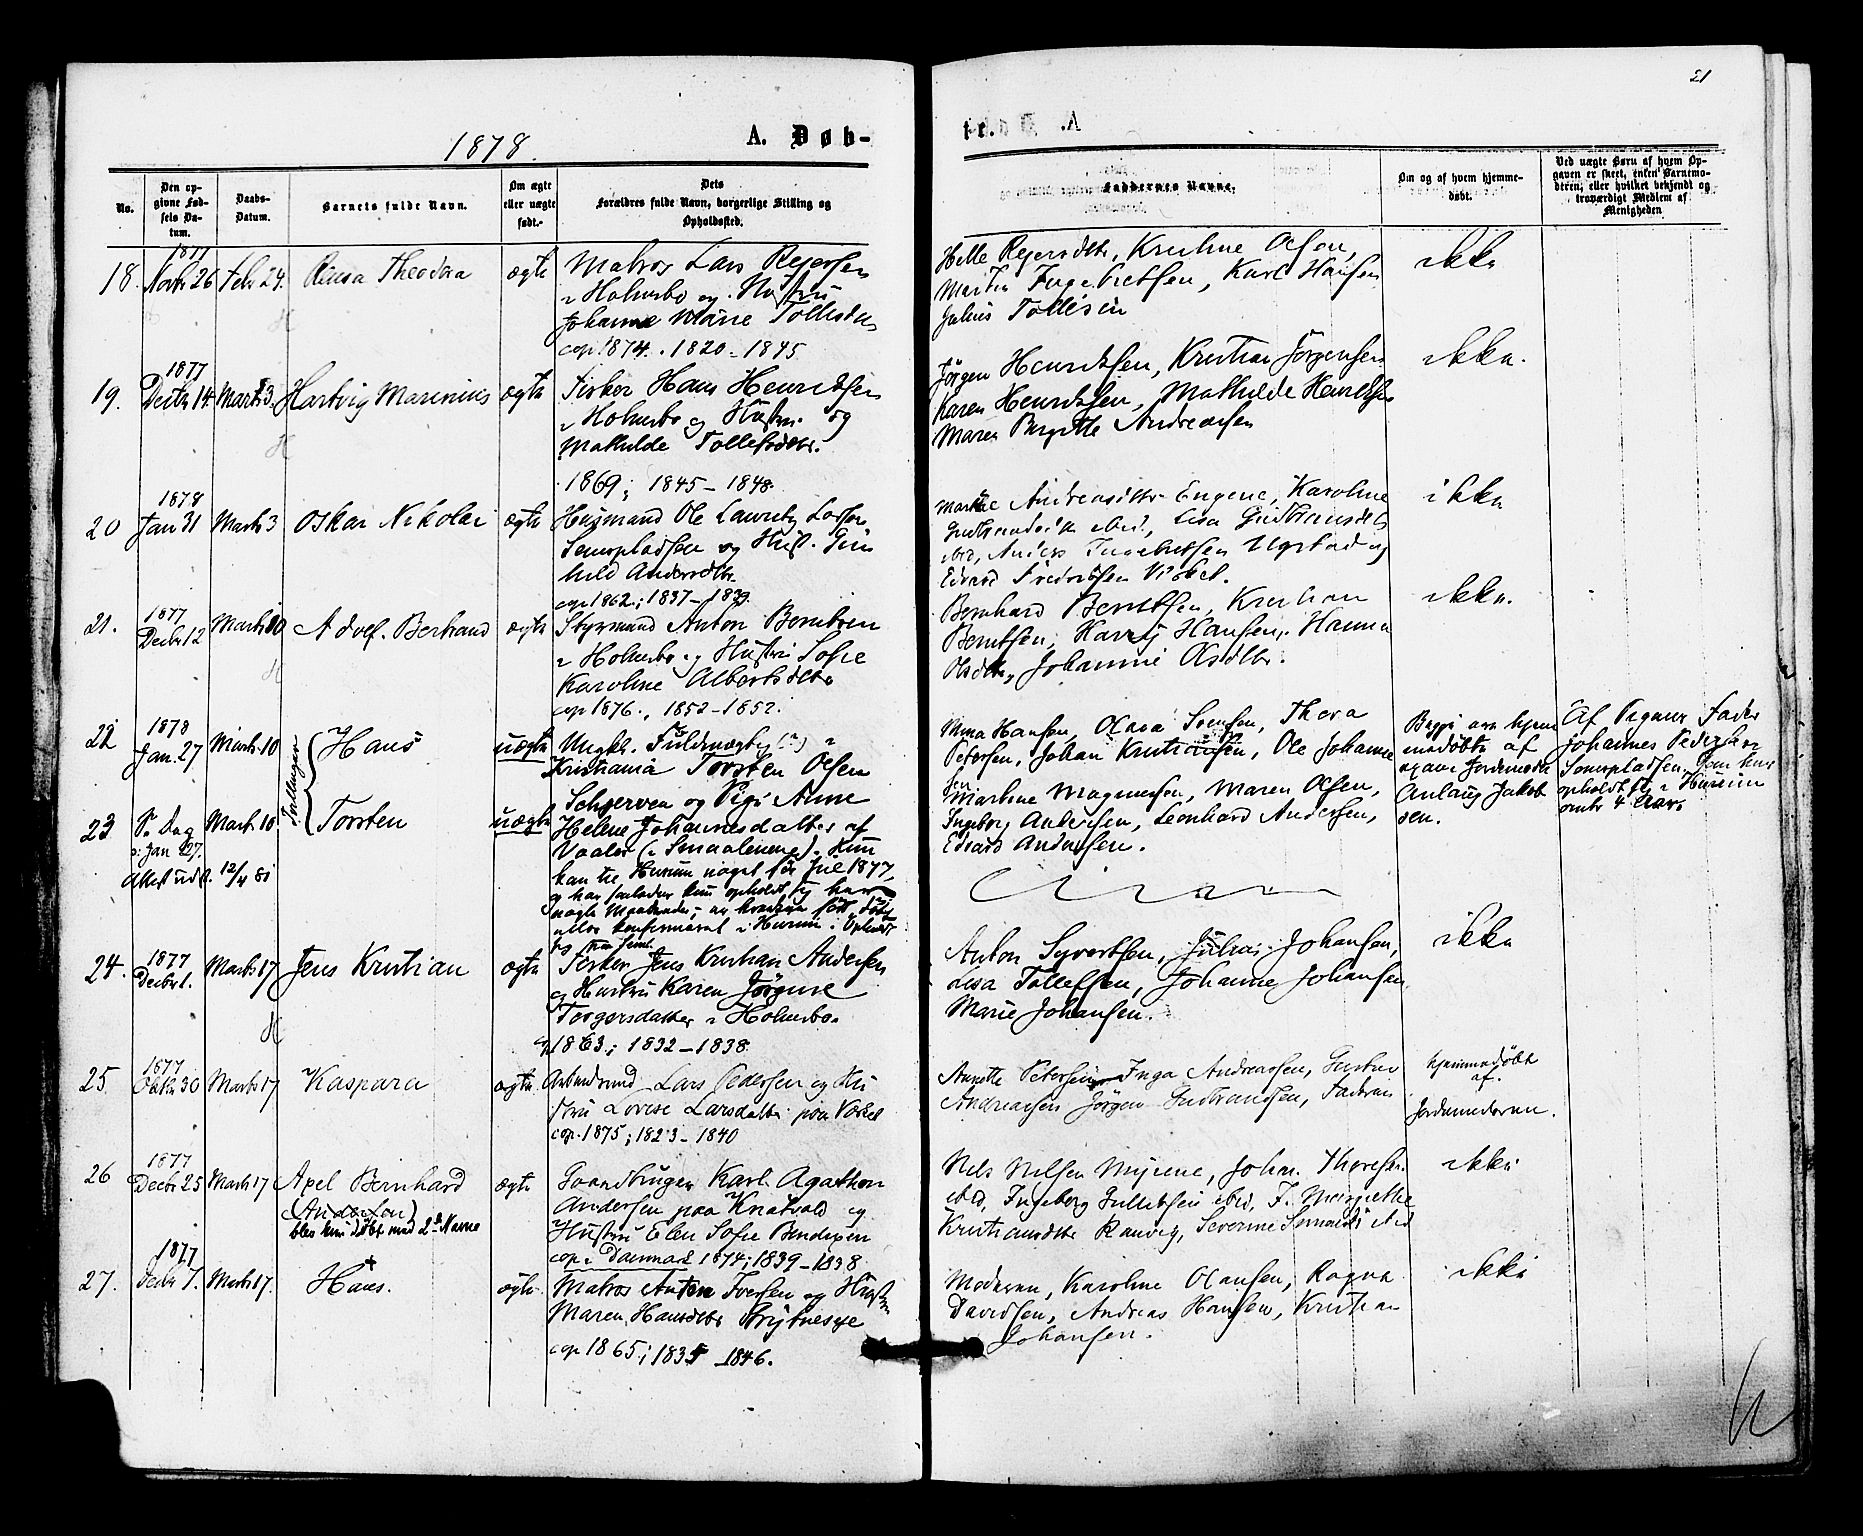 21
1878.
A. Døb-
No.
Den opgivne Fødsels Datum.
Daabs-Datum.
Barnets fulde Navn.
Om ægte eller uægte født.
Dets Forældres fulde Navn, borgerlige Stilling og Opholdssted.
Faddernes Navne.
Om og af hvem hjemmedøbt.
Ved uægte Børn af hvem Opgaven er skeet, enken Barnemoderen, eller hvilket bekjendt og troværdigt Medlem af Menigheden
18. 1877 Novbr 26 Febr 24. Theodora ægte
Matros Lars Rejersen
i Holmsbo og Hustru
Johanne Marie Tollefsdtr
cop. 1874. 1820 - 1845
Helle Rejersdtr, Kristine Olsen,
Martin Ingebretsen, Karl Hansen
Julius Tollesen
ikke
19. 1877 Decbr 14. Marts 3. Hartvig Marinius ægte
Fisker Hans Henriksen
i Holmsbo og Hustru
Mathilde Tollefsdtr.
1869; 1845 - 1848
Jörgen Henriksen, Kristian Jörgensen
Karen Henriksen, Mathilde Henriksen og
Maren Birgitte Andreasen
ikke.
20 1878 Jan 31 Marts 3 Oskar Nikolai ægte
Husmand Ole Lauritz Larsen
Semspladsen og Hust. Gun
hild Andersdtr.
cop 1862; 1837 - 1839
Andreasdtr Engene, Karoline
ebd., Lisa Gudbrandsdtr
ebd, Anders Ingebretsen og
Edvard
ikke
21. 1877 Decbr 12 Marts 10 Adolf Bertrand ægte
Styrmand Anton Berntsen
i Holmsbo og Hustru Sofie
Karoline Albertsdtr
cop 1876., 1852 - 1852.
Bernhard Berntsen, Kristian
Berntsen, Hansen, Hanna
Olsdtr, Johanne Olsdtr.
ikke.
22 1878 Jan. 27 Marts 10 Tvillinger Hans uægte
23 S. Dag o: Jan 27. Marts 10 Torsten uægte
Attest udst. 12/4 81
Ungkl. Fuldmægtig (?) i
Kristiania Torsten Olsen
Schjerven og Pige Anne
Helene Johannesdatter af
Vaaler (i Smaalenene). Hun
kom til Hurum noget før Jul 1877,
og har saaledes kun opholdt sig her
nogle Maaneder, er hverken født, döbt
eller konfirmeret i Hurum.
Mina Hansen, Olava Svensen, Thora
Petersen, Johan Kristiansen, Ole Johanne
sen
Martine Magnussen, Maren Olsen,
Ingeborg Andersen, Leonhard Andersen,
Edvard Andersen.
Begge ere hjem
medöbte af
Jordemoder
Jakob
sen.
Af Pigens Fader
Johannes Pedersen
Semspladsen, som har
opholdt sig i Hurum
omtr 4 Aar.
24. 1877 Decbr 1. Marts 17 Jens Kristian ægte
Fisker Jens Kristian Andersen
og Hustru Karen Jörgine
Torgersdatter i Holmsbo.
cop 1863; 1832 - 1838
Anton Syvertsen, Julius Johansen,
Lisa Tollefsen, Johanne Johansen
Marie Johansen.
ikke
25 1877 Oktbr 30 Marts 17 Kaspara ægte
Arbeidsmand Lars Pedersen og Hu
stru Lovise Larsdatter paa
cop. 1875; 1823 - 1840
Annette Petersen, Inga Andreasen, Gustav
Andreasen Jörgen Gudbrandsen, Faderen
hjemmedöbt
af
Jordemoderen.
26 1877 Decbr 25 Marts 17 Axel Bernhard
(Andersen)
blev kun döbt med 2 Navne
ægte
Gaardbruger Karl Agathon
Andersen paa Knatvold og
Hustru Elen Sofie
cop i Danmark 1874; 1839 - 1838
Nels Nelsen Myrene, Johan Thoresen
ebd, Ingeborg Gulliksen ebd, F. Margrethe
Kristiansdtr Ranvig, Severine ebd
ikke
27. 1877 Decbr 7. Marts 17. Hans. ægte
Matros Anton Iversen og Hustru
Maren Hansdtr
cop 1865; 1835 - 1846.
Moderen, Karoline Olausen, Ragna
Davidsen, Andreas Hansen, Kristian
Johansen.
ikke